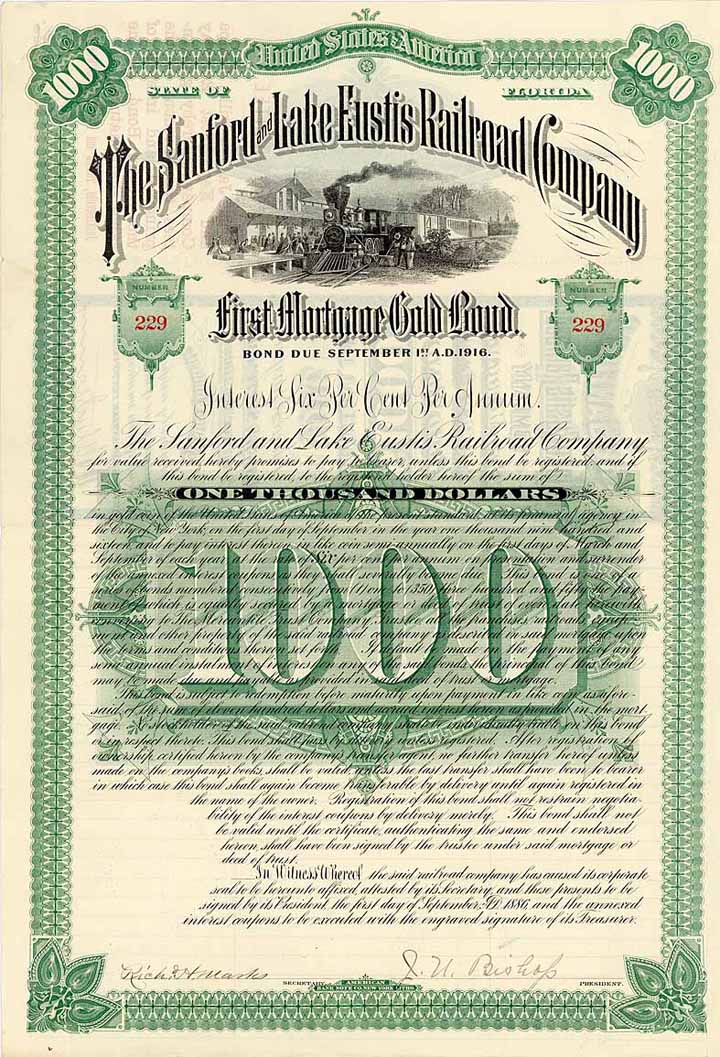 1000
United States of America
1000
STATE OF FLORIDA
The Sanford and Lake Eustis Railroad Company
NUMBER
229
NUMBER
229
First Mortgage Gold Bond.
BOND DUE SEPTEMBER 1ST A.D. 1916.
Interest Six Per Cent Per Annum.
The Sanford and Lake Eustis Railroad Company
for value received, hereby promises to pay to bearer, unless this bond be registered, and if
this bond be registered, to the registered holder hereof the sum of
ONE THOUSAND DOLLARS
in gold coin of the United States of America of the present standard, at its financial agency in
the City of New York, on the first day of September in the year one thousand nine hundred and
sixteen, and to pay interest thereon in like coin semi-annually on the first days of March and
September of each year at the rate of six per centum per annum on presentation and surrender
of the annexed interest coupons as they shall severally become due. This bond is one of a
series of bonds numbered consecutively from 1 (one) to 350 (three hundred and fifty) the pay-
ment of which is equally secured by a mortgage or deed of trust of even date
to the Mercantile Trust Company, Trustee, of the premises, railroad,
and other property of the said railroad company as described in said mortgage, upon
the terms and conditions therein set forth. If default be made in the payment of any
semi annual instalment of interest on any of the said bonds the principal of this bond
may be made due and payable as provided in said deed of trust or mortgage.
This bond is subject to redemption before maturity upon payment in like coin as afore-
said, of the sum of eleven hundred dollars and accrued interest thereon as provided in the mort-
gage. No stockholder of the said railroad company shall be individually liable on this bond
or in respect thereto. This bond shall pass by delivery unless registered. After registration of
ownership, certified hereon by the company's transfer agent, no further transfer hereof unless
made on the company's books, shall be valid, unless the last transfer shall have been to bearer
in which case this bond shall again become transferable by delivery until again registered in
the name of the owner. Registration of this bond shall not restrain negotia-
bility of the interest coupons by delivery merely. This bond shall not
be valid until the certificate, authenticating the same and endorsed
hereon, shall have been signed by the trustee under said mortgage or
deed of trust.
In Witness Whereof the said railroad company has caused its corporate
seal to be hereunto affixed, attested by its Secretary, and these presents to be
signed by its President the first day of September, A.D. 1886, and the annexed
interest coupons to be executed with the engraved signature of its Treasurer.
1000
Rich'd H Marks
SECRETARY.
J. N. Bishop
PRESIDENT.
AMERICAN
BANK NOTE CO. NEW YORK LITHO.